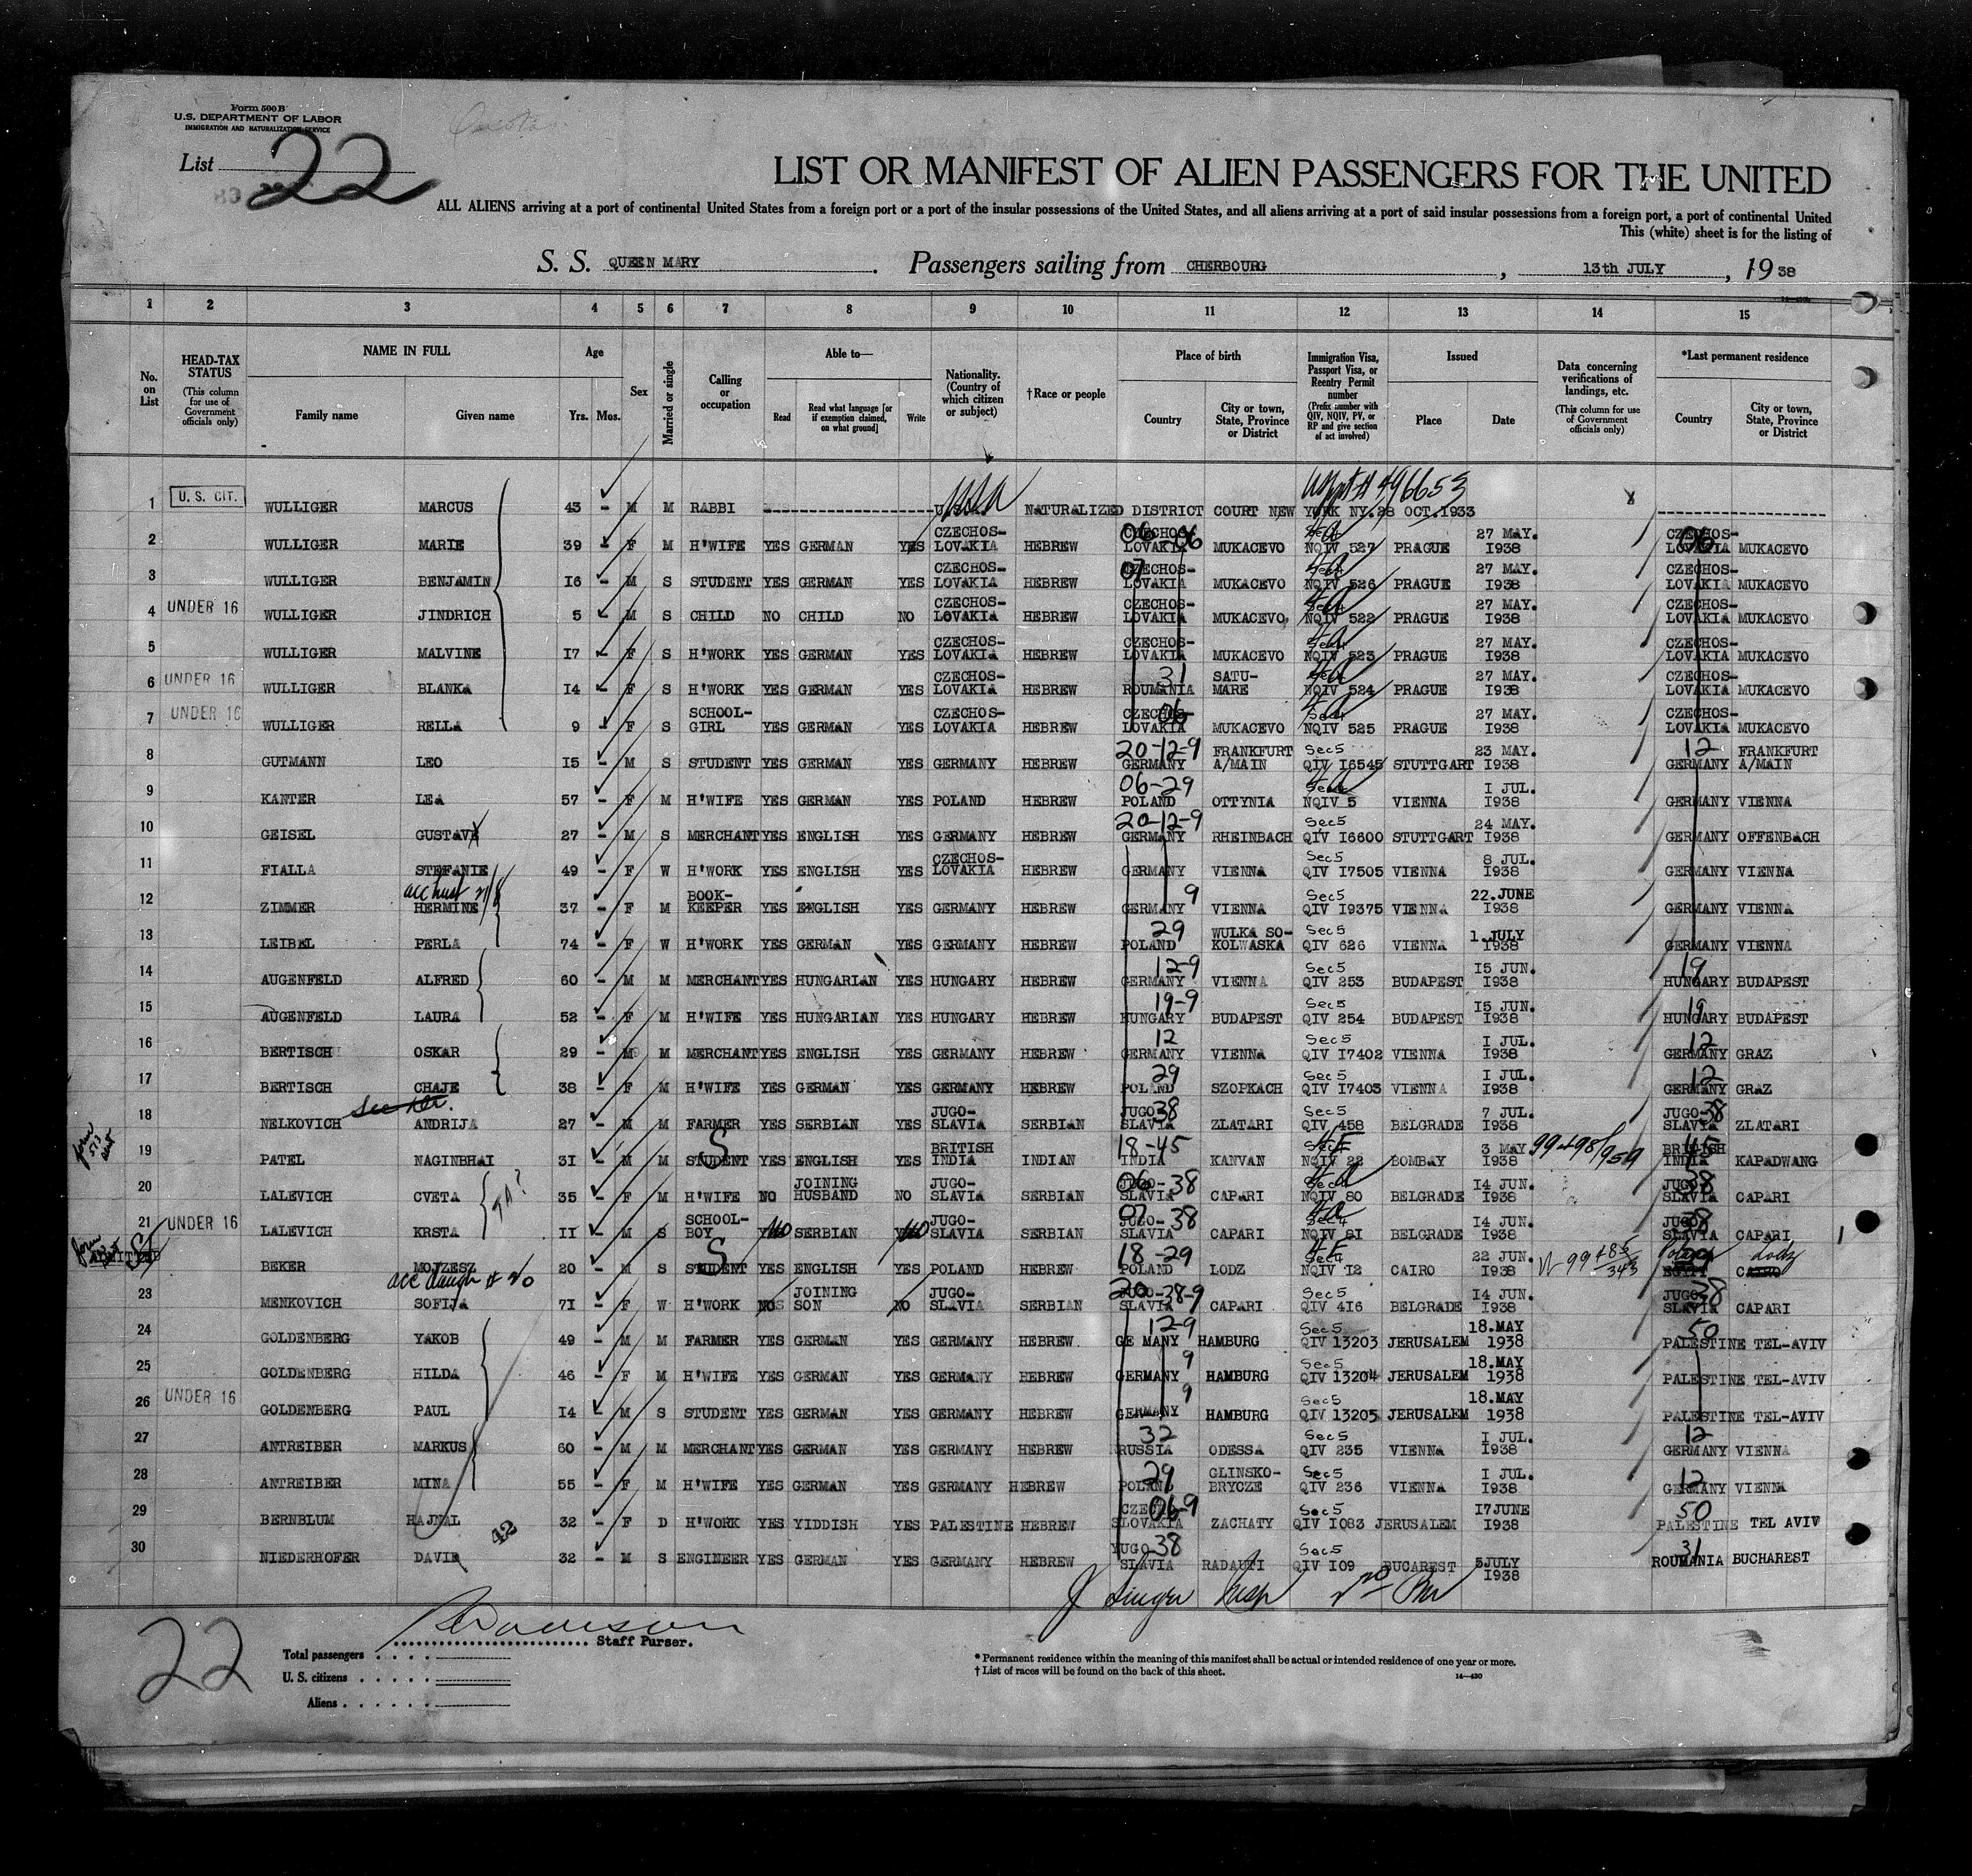 Form 500 B
U.S. DEPARTMENT OF LABOR
IMMIGRATION AND NATURALIZATION SERVICE
List 22
LIST OR MANIFEST OF ALIEN PASSENGERS FOR THE UNITED
ALL ALIENS arriving at a port of continental United States from a foreign port or a port of the insular possessions of the United States, and all aliens arriving at a port of said insular possessions from a foreign port, a port of continental United
This (white) sheet is for the listing of
S. S. QUEEN MARY. Passengers sailing from CHERBOURG, 13th JULY, 1938
1 2 3 4 5 6 7 8 9 10 11 12 13 14 15
No. on List
HEAD-TAX STATUS (This column for use of Government officials only)
NAME IN FULL Family name Given name
Age Yrs. Mos.
Sex
Married or single
Calling or occupation
Able to— Read Read what language [or if exemption claimed, on what ground] Write
Nationality. (Country of which citizen or subject)
†Race or people
Place of birth Country City or town, State, Province or District
Immigration Visa, Passport Visa, or Reentry Permit number (Prefix number with QIV, NQIV, PV, or RP and give section of act involved)
Issued Place Date
Data concerning verifications of landings, etc. (This column for use of Government officials only)
*Last permanent residence Country City or town, State, Province or District
1 U. S. CIT. WULLIGER MARCUS 43 - M M RABBI USA NATURALIZED DISTRICT COURT NEW YORK NY. 28 OCT. 1933
2 WULLIGER MARIE 39 - F M H'WIFE YES GERMAN YES CZECHOS-LOVAKIA HEBREW CZECHOS-LOVAKIA 06 MUKACEVO Sec4 4a NQIV 527 PRAGUE 27 MAY. 1938 CZECHOS-LOVAKIA 06 MUKACEVO
3 WULLIGER BENJAMIN I6 - M S STUDENT YES GERMAN YES CZECHOS-LOVAKIA HEBREW CZECHOS-LOVAKIA 07 MUKACEVO Sec4 4a NQIV 526 PRAGUE 27 MAY. 1938 CZECHOS-LOVAKIA MUKACEVO
4 UNDER 16 WULLIGER JINDRICH 5 - M S CHILD NO CHILD NO CZECHOS-LOVAKIA HEBREW CZECHOS-LOVAKIA MUKACEVO Sec4 4a NQIV 522 PRAGUE 27 MAY. 1938 CZECHOS-LOVAKIA MUKACEVO
5 WULLIGER MALVINE I7 - F S H'WORK YES GERMAN YES CZECHOS-LOVAKIA HEBREW CZECHOS-LOVAKIA MUKACEVO Sec4 4a NQIV 523 PRAGUE 27 MAY. 1938 CZECHOS-LOVAKIA MUKACEVO
6 UNDER 16 WULLIGER BLANKA I4 - F S H'WORK YES GERMAN YES CZECHOS-LOVAKIA HEBREW 31 ROUMANIA SATU-MARE 4a NQIV 524 PRAGUE 27 MAY. 1938 CZECHOS-LOVAKIA MUKACEVO
7 UNDER 16 WULLIGER RELLA 9 - F S SCHOOL-GIRL YES GERMAN YES CZECHOS-LOVAKIA HEBREW CZECHOS-LOVAKIA 06 MUKACEVO Sec4 4a NQIV 525 PRAGUE 27 MAY. 1938 CZECHOS-LOVAKIA MUKACEVO
8 GUTMANN LEO I5 - M S STUDENT YES GERMAN YES GERMANY HEBREW 20-12-9 GERMANY FRANKFURT A/MAIN Sec5 QIV I6545 STUTTGART 23 MAY. 1938 12 GERMANY FRANKFURT A/MAIN
9 KANTER LEA 57 - F M H'WIFE YES GERMAN YES POLAND HEBREW 06-29 POLAND OTTYNIA Sec4 4a NQIV 5 VIENNA I JUL. 1938 GERMANY VIENNA
10 GEISEL GUSTAVE 27 - M S MERCHANT YES ENGLISH YES GERMANY HEBREW 20-12-9 GERMANY RHEINBACH Sec5 QIV I6600 STUTTGART 24 MAY. 1938 GERMANY OFFENBACH
11 FIALLA STEFANIE 49 - F W H'WORK YES ENGLISH YES CZECHOS-LOVAKIA HEBREW GERMANY VIENNA Sec5 QIV I7505 VIENNA 8 JUL. 1938 GERMANY VIENNA
12 ZIMMER HERMINE 37 - F M BOOK-KEEPER YES ENGLISH YES GERMANY HEBREW 9 GERMANY VIENNA Sec5 QIV I9375 VIENNA 22.JUNE 1938 GERMANY VIENNA
13 LEIBEL PERLA 74 - F W H'WORK YES GERMAN YES GERMANY HEBREW 29 POLAND WULKA SO-KOLWASKA Sec5 QIV 626 VIENNA 1.JULY 1938 GERMANY VIENNA
14 AUGENFELD ALFRED 60 - M M MERCHANT YES HUNGARIAN YES HUNGARY HEBREW 12-9 GERMANY VIENNA Sec5 QIV 253 BUDAPEST I5 JUN. 1938 19 HUNGARY BUDAPEST
15 AUGENFELD LAURA 52 - F M H'WIFE YES HUNGARIAN YES HUNGARY HEBREW 19-9 HUNGARY BUDAPEST Sec5 QIV 254 BUDAPEST I5 JUN. 1938 19 HUNGARY BUDAPEST
16 BERTISCH OSKAR 29 - M M MERCHANT YES ENGLISH YES GERMANY HEBREW 12 GERMANY VIENNA Sec5 QIV I7402 VIENNA I JUL. 1938 12 GERMANY GRAZ
17 BERTISCH CHAJE 38 - F M H'WIFE YES GERMAN YES GERMANY HEBREW 29 POLAND SZOPKACH Sec5 QIV I7403 VIENNA I JUL. 1938 12 GERMANY GRAZ
18 NELKOVICH ANDRIJA 27 - M M FARMER YES SERBIAN YES JUGO-SLAVIA SERBIAN JUGO-SLAVIA 38 ZLATARI Sec5 QIV 458 BELGRADE 7 JUL. 1938 JUGO-SLAVIA 38 ZLATARI
19 PATEL NAGINBHAI 3I - M M STUDENT S YES ENGLISH YES BRITISH INDIA INDIAN 18-45 INDIA KANVAN 4E NQIV 22 BOMBAY 3 MAY 1938 BRITISH INDIA 45 KAPADWANG
20 LALEVICH CVETA 35 - F M H'WIFE NO JOINING HUSBAND NO JUGO-SLAVIA SERBIAN JUGO-SLAVIA 06-38 CAPARI Sec4 4a NQIV 80 BELGRADE I4 JUN. 1938 JUGO-SLAVIA 38 CAPARI
21 UNDER 16 LALEVICH KRSTA II - M S SCHOOL-BOY NO SERBIAN NO JUGO-SLAVIA SERBIAN JUGO-SLAVIA 07-38 CAPARI Sec4 4a NQIV 81 BELGRADE I4 JUN. 1938 JUGO-SLAVIA 38 CAPARI
BEKER MOJZESZ 20 - M S STUDENT S YES ENGLISH YES POLAND HEBREW 18-29 POLAND LODZ Sec4 4E NQIV I2 CAIRO 22 JUN. 1938 EGYPT CAIRO Lodz
23 MENKOVICH SOFIJA 7I - F W H'WORK NO JOINING SON NO JUGO-SLAVIA SERBIAN JUGO-SLAVIA 20-38-9 CAPARI Sec5 QIV 4I6 BELGRADE I4 JUN. 1938 JUGO-SLAVIA 38 CAPARI
24 GOLDENBERG YAKOB 49 - M M FARMER YES GERMAN YES GERMANY HEBREW 12-9 GE MANY HAMBURG Sec5 QIV 13203 JERUSALEM 18.MAY 1938 50 PALESTINE TEL-AVIV
25 GOLDENBERG HILDA 46 - F M H'WIFE YES GERMAN YES GERMANY HEBREW 9 GERMANY HAMBURG Sec5 QIV 13204 JERUSALEM 18.MAY 1938 PALESTINE TEL-AVIV
26 UNDER 16 GOLDENBERG PAUL I4 - M S STUDENT YES GERMAN YES GERMANY HEBREW 9 GERMANY HAMBURG Sec5 QIV 13205 JERUSALEM 18.MAY 1938 PALESTINE TEL-AVIV
27 ANTREIBER MARKUS 60 - M M MERCHANT YES GERMAN YES GERMANY HEBREW 32 RUSSIA ODESSA Sec5 QIV 235 VIENNA I JUL. 1938 12 GERMANY VIENNA
28 ANTREIBER MINA 55 - F M H'WIFE YES GERMAN YES GERMANY HEBREW 29 POLAND GLINSKO-BRYCZE Sec5 QIV 236 VIENNA I JUL. 1938 12 GERMANY VIENNA
29 BERNBLUM HAJNAL 32 - F D H'WORK YES YIDDISH YES PALESTINE HEBREW CZECHO-SLOVAKIA 06-9 ZACHATY Sec5 QIV I083 JERUSALEM I7JUNE 1938 50 PALESTINE TEL AVIV
42
30 NIEDERHOFER DAVID 32 - M S ENGINEER YES GERMAN YES GERMANY HEBREW YUGO SLAVIA 38 RADAUTI Sec5 QIV I09 BUCAREST 5JULY 1938 31 ROUMANIA BUCHAREST
J Singer
22
Staff Purser.
Total passengers
U. S. citizens
Aliens
* Permanent residence within the meaning of this manifest shall be actual or intended residence of one year or more.
† List of races will be found on the back of this sheet.
14—430